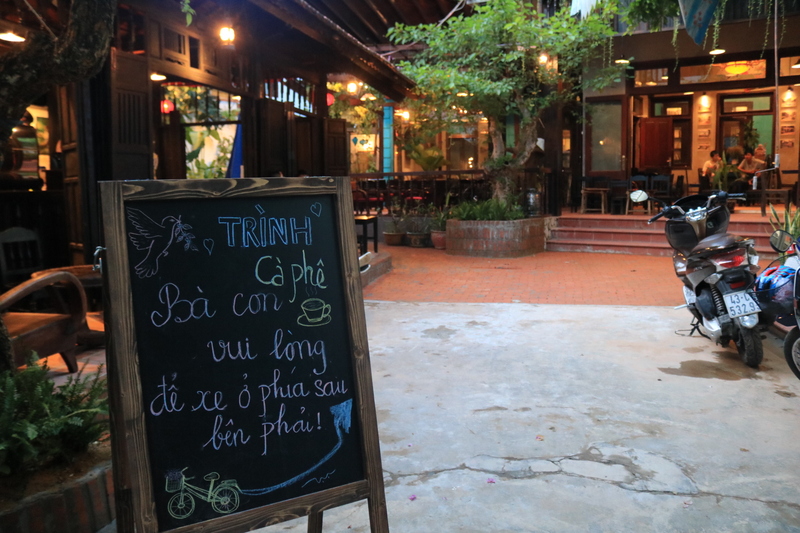 TRÌNH
Cà phê
Bà con
vui lòng
để xe ở phía sau
bên phải!
43-L
5329